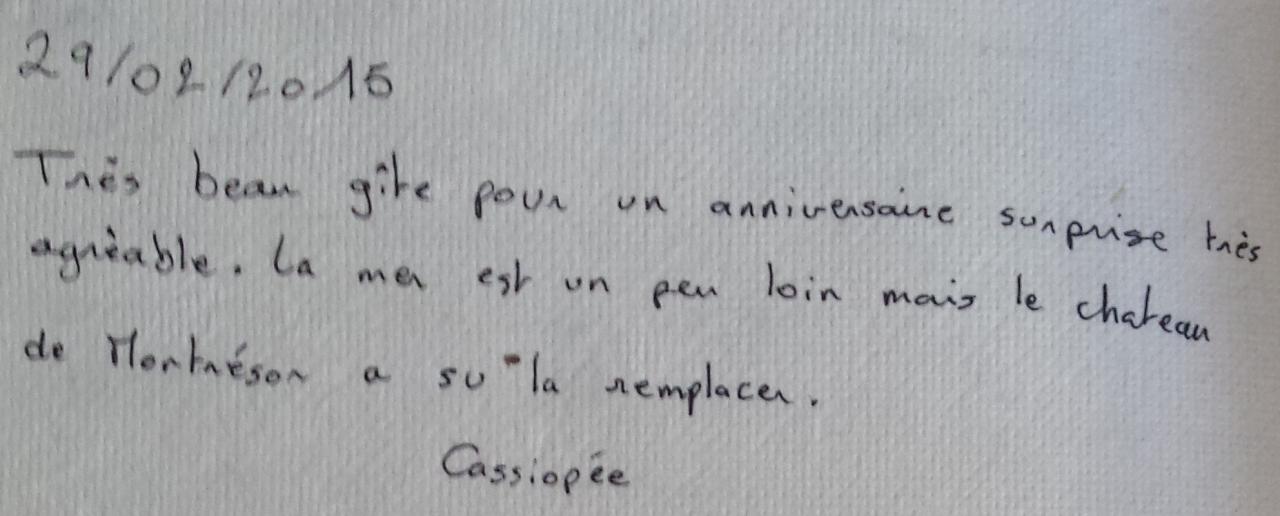 29/02/2016
Très beau gîte pour un anniversaire surprise très
agrèable. La mer est un peu loin mais le chateau
de Montrésor a su la remplacer.
Cassiopée